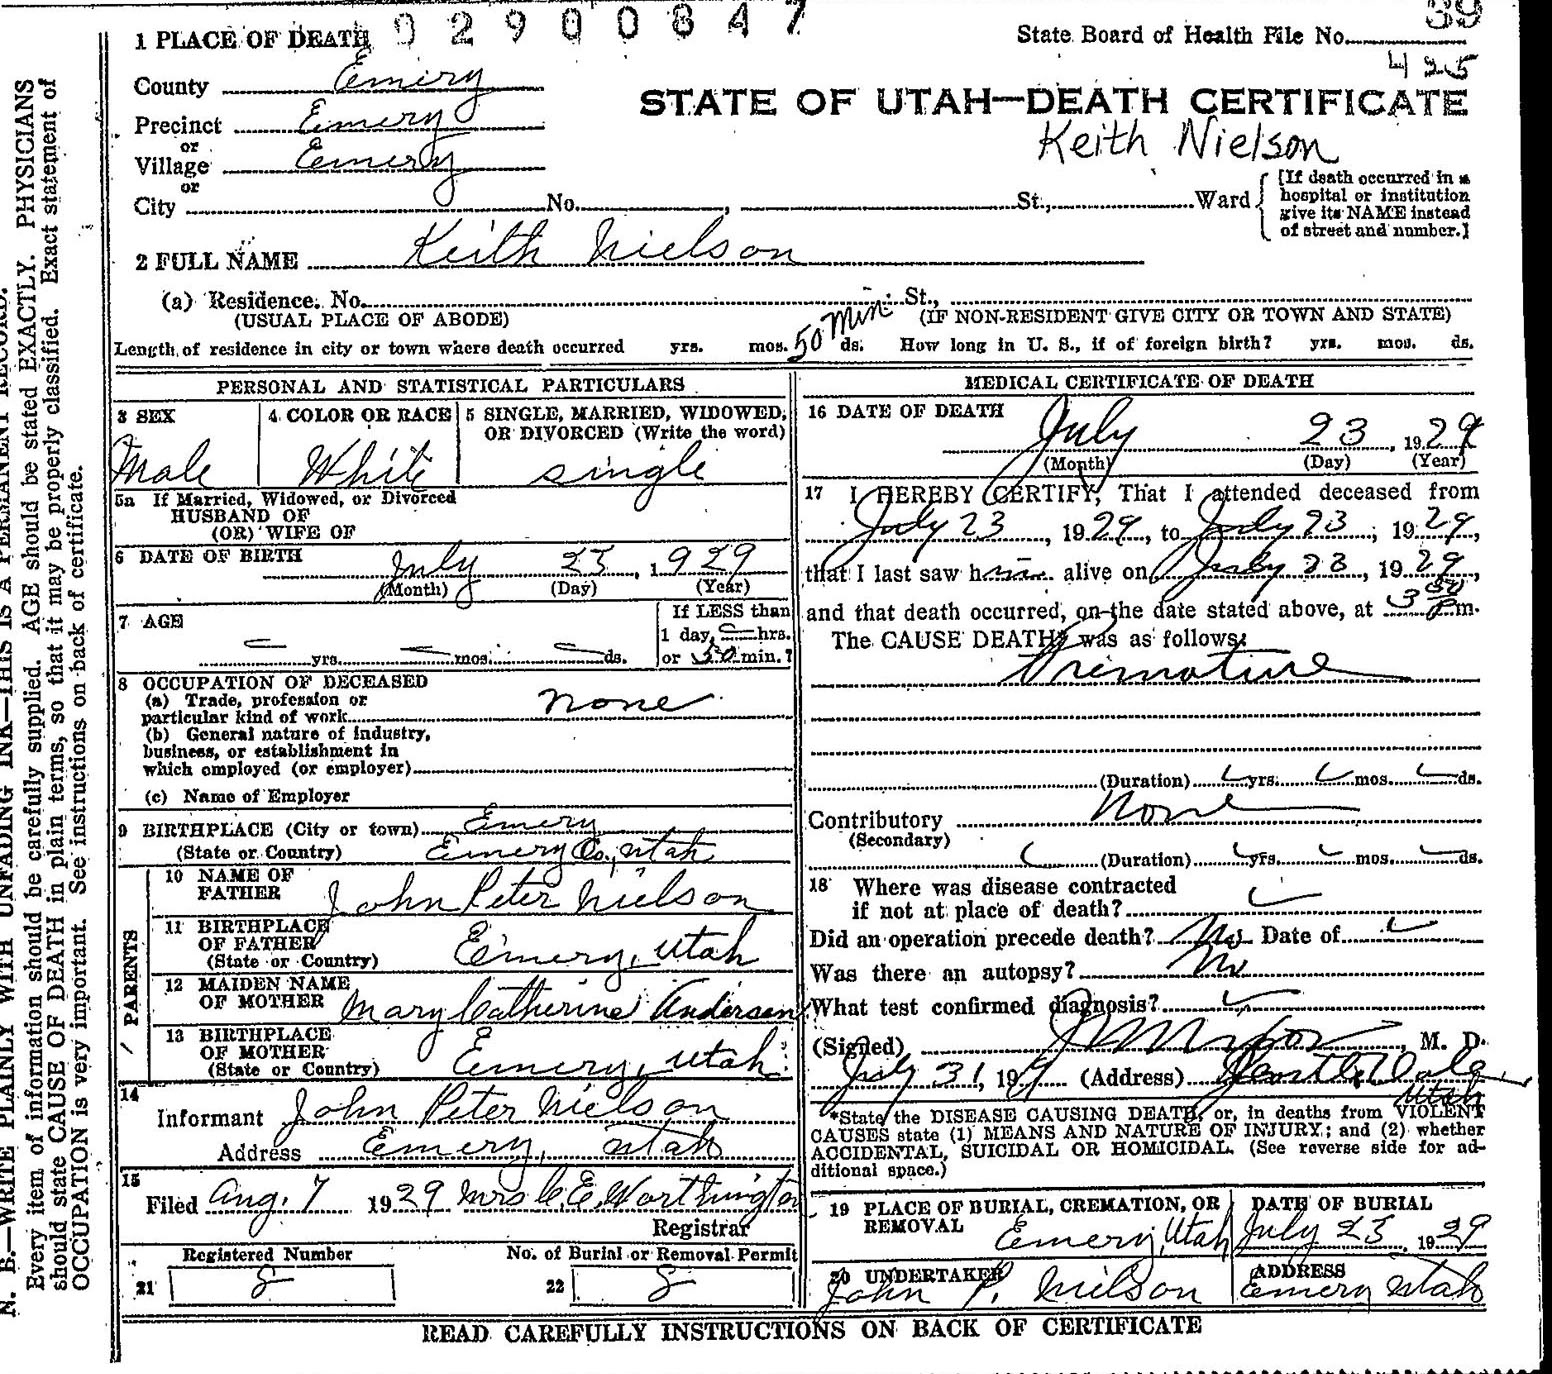 1 PLACE OF DEATH 02900847
State Board of Health File No. 39
425
County Emery
STATE OF UTAH—DEATH CERTIFICATE
Precinct Emery
Keith Nielson
or
Village Emery
or
City No. , St., Ward
[If death occurred in a
hospital or institution
give its NAME instead
of street and number.]
2 FULL NAME Keith Nielson
(a) Residence. No. St.,
(USUAL PLACE OF ABODE) (IF NON-RESIDENT GIVE CITY OR TOWN AND STATE)
Length of residence in city or town where death occurred yrs. mos. 50 Min. ds. How long in U. S., if of foreign birth? yrs. mos. ds.
PERSONAL AND STATISTICAL PARTICULARS
3 SEX
Male
4 COLOR OR RACE
White
5 SINGLE, MARRIED, WIDOWED,
OR DIVORCED (Write the word)
single
5a If Married, Widowed, or Divorced
HUSBAND OF
(OR) WIFE OF
6 DATE OF BIRTH July 23, 1929
(Month) (Day) (Year)
7 AGE
yrs. mos. ds.
If LESS than
1 day, hrs.
or 50 min.?
8 OCCUPATION OF DECEASED
(a) Trade, profession or
particular kind of work none
(b) General nature of industry,
business, or establishment in
which employed (or employer)
(c) Name of Employer
9 BIRTHPLACE (City or town) Emery
(State or Country) Emery Co., Utah
PARENTS
10 NAME OF
FATHER John Peter Nielson
11 BIRTHPLACE
OF FATHER
(State or Country) Emery, Utah
12 MAIDEN NAME
OF MOTHER Mary Catherine Andersen
13 BIRTHPLACE
OF MOTHER
(State or Country) Emery, Utah.
14
Informant John Peter Nielson
Address Emery, Utah
15
Filed Aug. 7 1929 Mrs C. E. Worthington
Registrar
Registered Number
21 8
No. of Burial or Removal Permit
22 8
MEDICAL CERTIFICATE OF DEATH
16 DATE OF DEATH
July 23, 1929
(Month) (Day) (Year)
17 I HEREBY CERTIFY, That I attended deceased from
July 23, 1929, to July 23, 1929,
that I last saw him alive on July 23, 1929,
and that death occurred, on the date stated above, at 3 50 P m.
The CAUSE DEATH* was as follows:
Premature
(Duration) yrs. mos. ds.
Contributory None
(Secondary)
(Duration) yrs. mos. ds.
18 Where was disease contracted
if not at place of death?
Did an operation precede death? No Date of
Was there an autopsy? No
What test confirmed diagnosis?
(Signed) , M. D.
July 31, 19 (Address) Castle Dale
Utah
*State the DISEASE CAUSING DEATH, or, in deaths from VIOLENT
CAUSES state (1) MEANS AND NATURE OF INJURY; and (2) whether
ACCIDENTAL, SUICIDAL OR HOMICIDAL. (See reverse side for ad-
ditional space.)
19 PLACE OF BURIAL, CREMATION, OR
REMOVAL Emery, Utah
DATE OF BURIAL
July 23, 1929
20 UNDERTAKER
John P. Nielson
ADDRESS
Emery Utah
READ CAREFULLY INSTRUCTIONS ON BACK OF CERTIFICATE
N. B.—WRITE PLAINLY WITH UNFADING INK—THIS IS A PERMANENT RECORD.
Every item of information should be carefully supplied. AGE should be stated EXACTLY. PHYSICIANS
should state CAUSE OF DEATH in plain terms, so that it may be properly classified. Exact statement of
OCCUPATION is very important. See instructions on back of certificate.